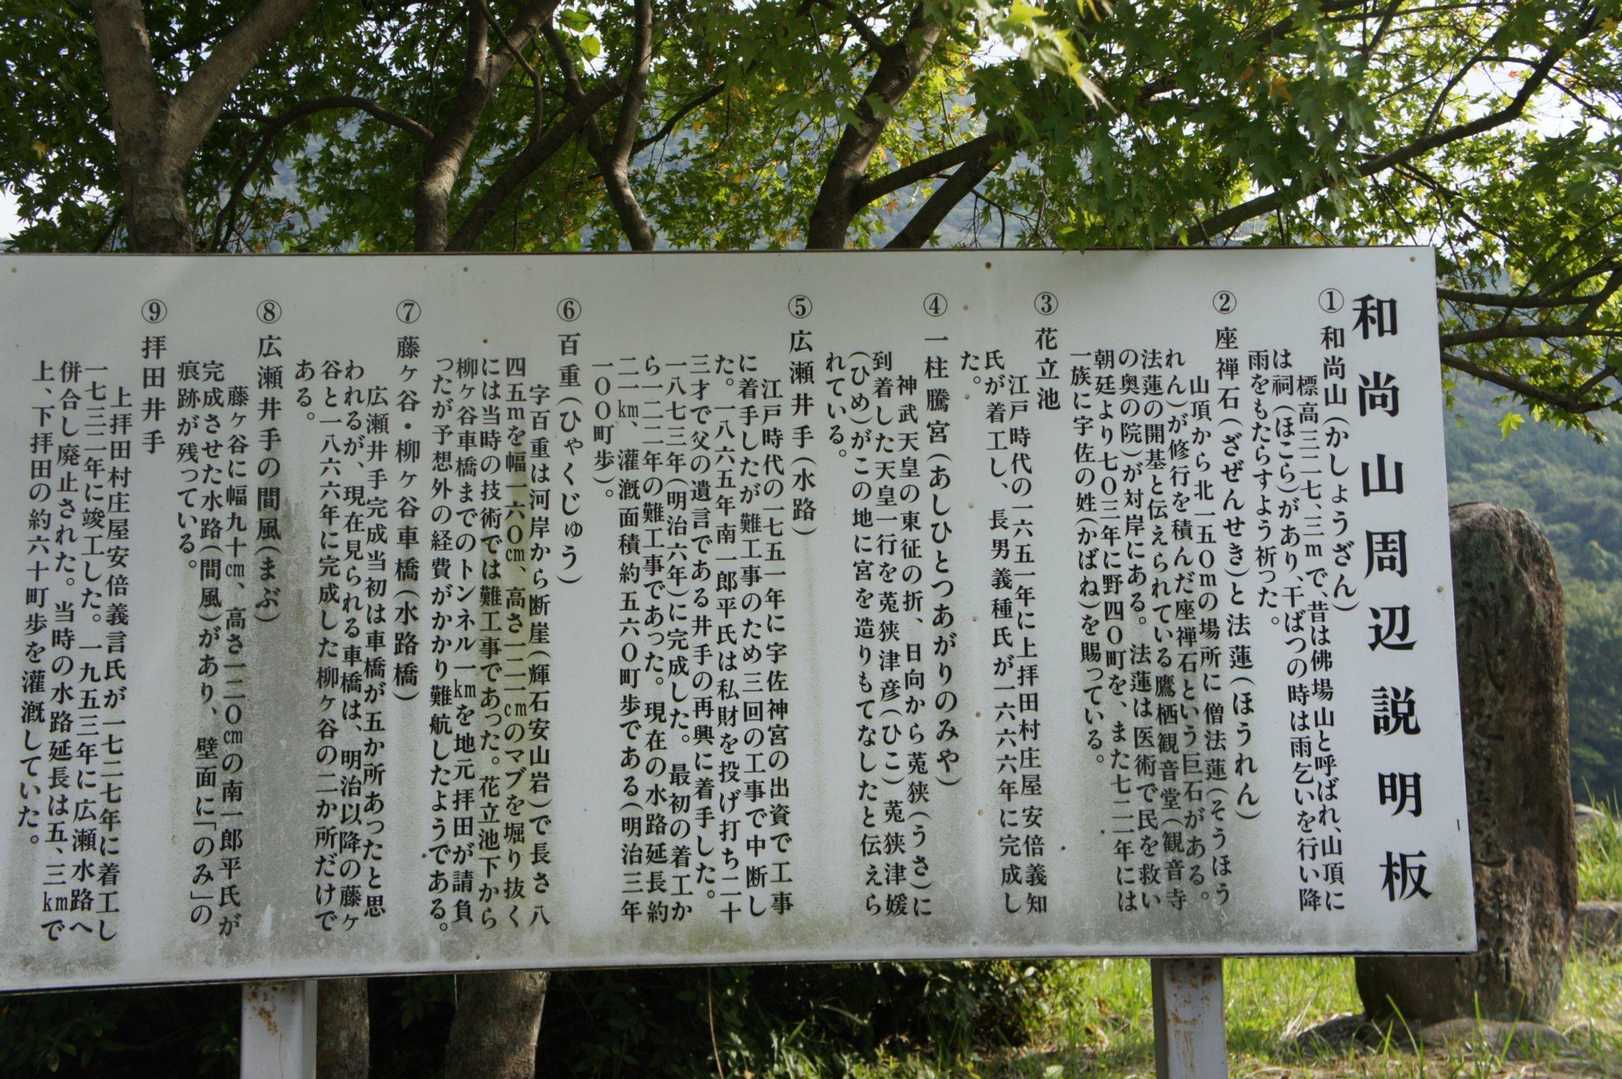 和尚山周辺説明板
①和尚山(かしょうざん)
標高三二七、三mで、昔は佛場山と呼ばれ、山頂に
は祠(ほこら)があり、干ばつの時は雨乞いを行い降
雨をもたらすよう祈った。
②座禅石(ざぜんせき)と法蓮(ほうれん)
山頂から北一五〇mの場所に僧法蓮(そうほう
れん)が修行を積んだ座禅石という巨石がある。
法蓮の開基と伝えられている鷹栖観音堂(観音寺
の奥の院)が対岸にある。法蓮は医術で民を救い
朝廷より七〇三年に野四〇町を、また七二一年には
一族に宇佐の姓(かばね)を賜っている。
③花立池
江戸時代の一六五一年に上拝田村庄屋安倍義知
氏が着工し、長男義種氏が一六六六年に完成し
た。
④一柱騰宮(あしひとつあがりのみや)
神武天皇の東征の折、日向から莵狭(うさ)に
到着した天皇一行を莵狭津彦(ひこ)莵狭津媛
(ひめ)がこの地に宮を造りもてなしたと伝えら
れている。
⑤広瀬井手(水路)
江戸時代の一七五一年に宇佐神宮の出資で工事
に着手したが難工事のため三回の工事で中断し
た。一八六五年南一郎平氏は私財を投げ打ち二十
三才で父の遺言である井手の再興に着手した。
一八七三年(明治六年)に完成した。最初の着工か
ら一二二年の難工事であった。現在の水路延長約
二一km、灌漑面積約五六〇町歩である(明治三年
一〇〇町歩)。
⑥百重(ひゃくじゅう)
字百重は河岸から断崖(輝石安山岩)で長さ八
四五mを幅一六〇cm、高さ一二一cmのマブを堀り抜く
には当時の技術では難工事であった。花立池下から
柳ヶ谷車橋までのトンネル一kmを地元拝田が請負
ったが予想外の経費がかかり難航したようである。
⑦藤ヶ谷・柳ヶ谷車橋(水路橋)
広瀬井手完成当初は車橋が五か所あったと思
われるが、現在見られる車橋は、明治以降の藤ヶ
谷と一八六六年に完成した柳ヶ谷の二か所だけで
ある。
⑧広瀬井手の間風(まぶ)
藤ヶ谷に幅九十cm、高さ一二〇cmの南一郎平氏が
完成させた水路(間風)があり、壁面に「のみ」の
痕跡が残っている。
⑨拝田井手
上拝田村庄屋安倍義言氏が一七二七年に着工し
一七三二年に竣工した。一九五三年に広瀬水路へ
併合し廃止された。当時の水路延長は五、三kmで
上、下拝田の約六十町歩を灌漑していた。